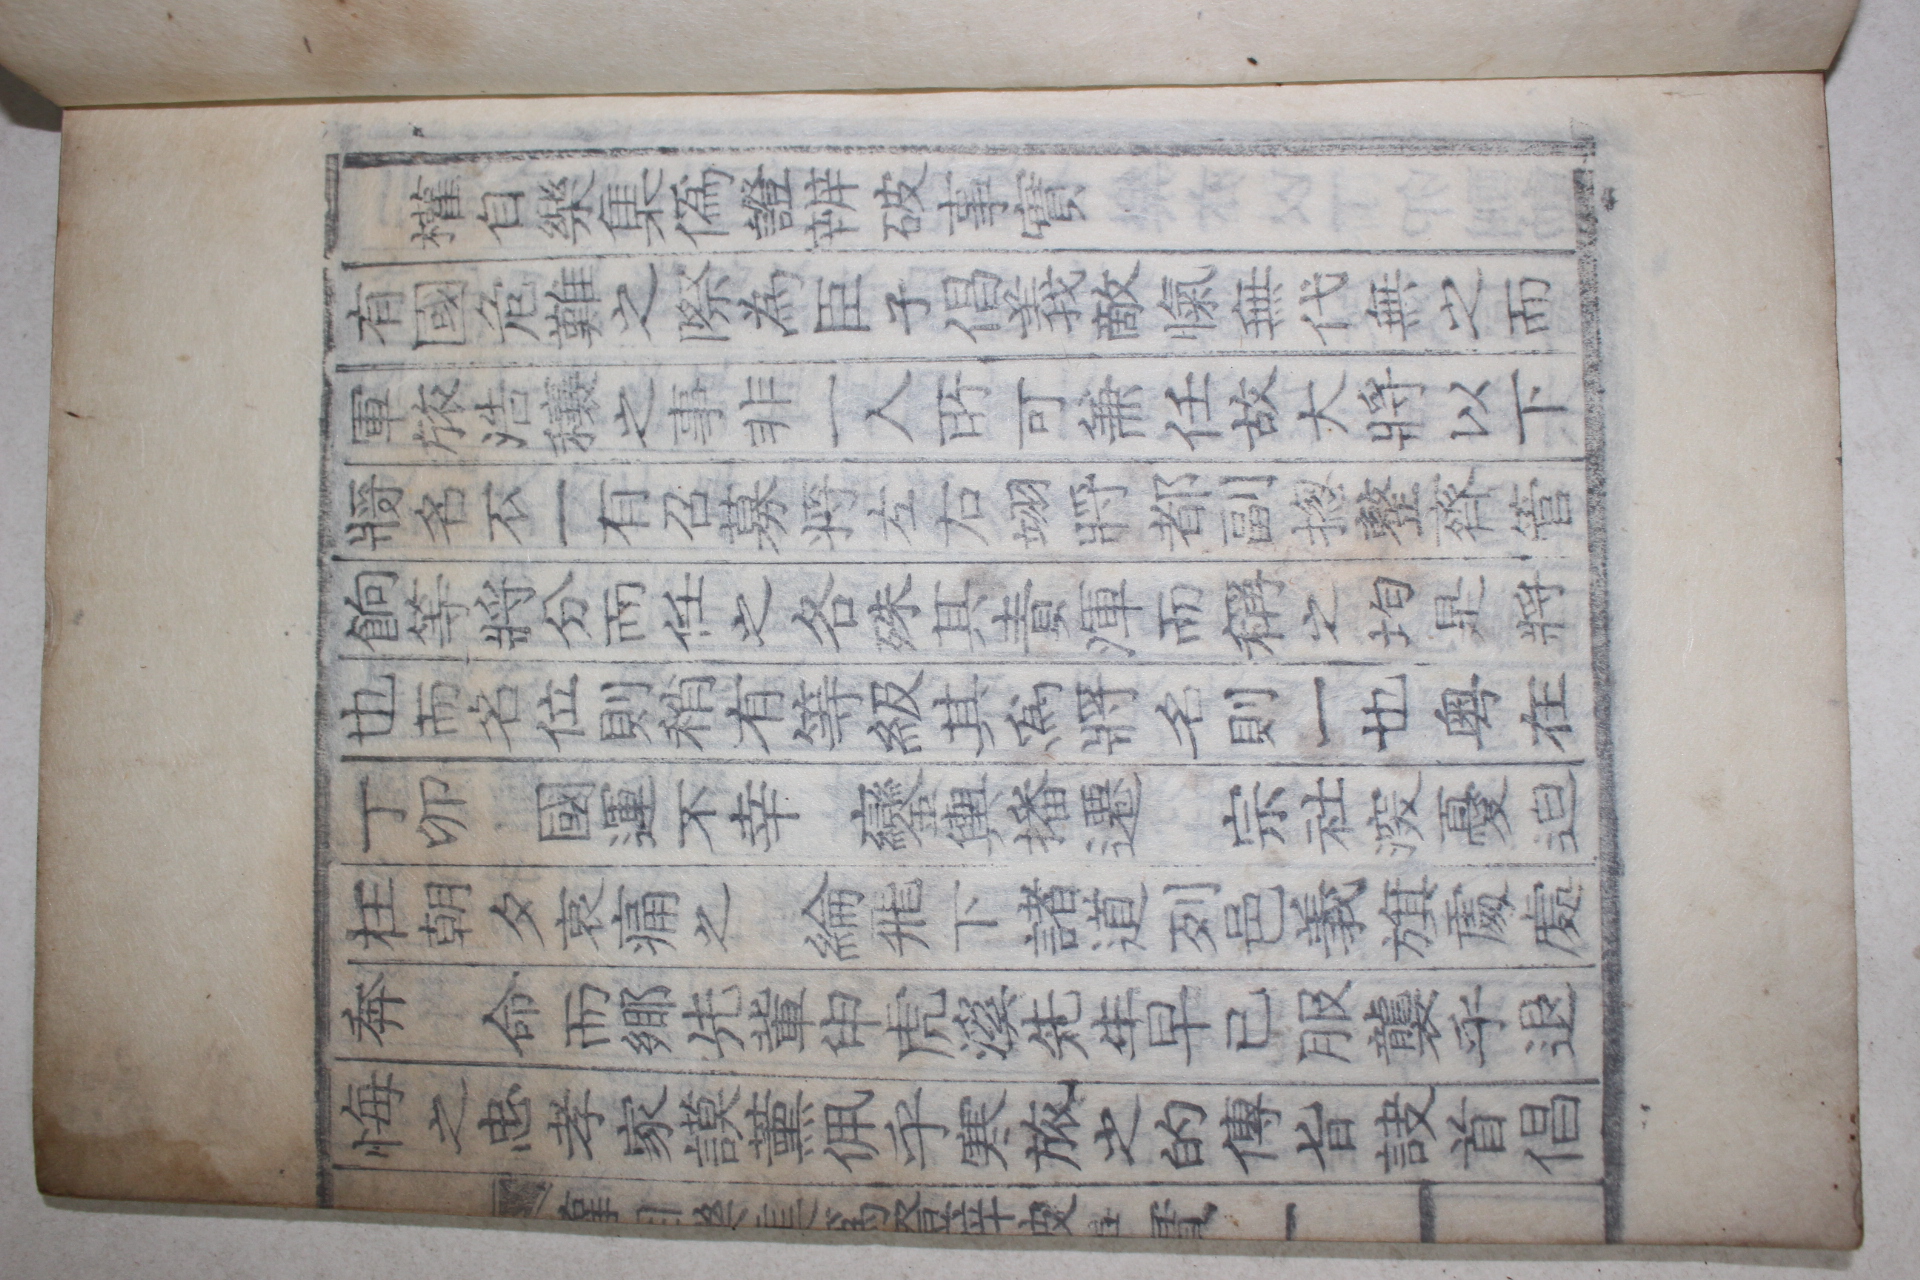 權自樂集僞證辨破事實
有國危難之際為臣子倡義敵愾無代無之而
軍旅浩穰之事非一人所可兼任故大將以下
將名不一有召募將左右翊將都副摠整齊管
餉等將分而任之各殊其責渾而稱之均是將
也而名位則稍有等級其爲將名則一也粤在
丁卯 國運不幸 鑾輿播遷 宗社深憂迫
在朝夕哀痛之 綸飛下諸道列邑義旗處處
奔 命而鄉先輩申虎溪先生早已服襲乎退
悔之忠孝家謨薰佩乎寒旅之的傳旨訣首倡
權自樂集僞證辨破事實 一